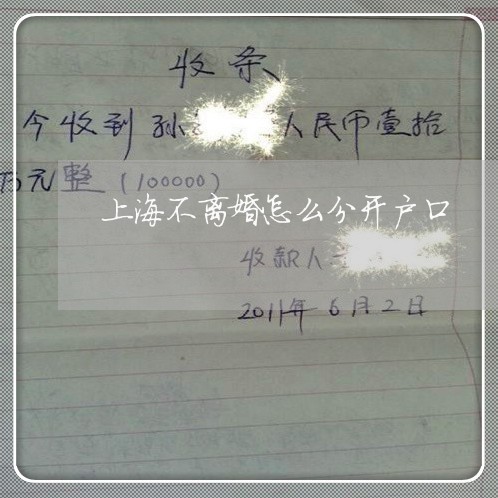 收条
今收到孙 人民币壹拾
万元整（100000）
上海不离婚怎么分开户口
收款人
2011年6月2日